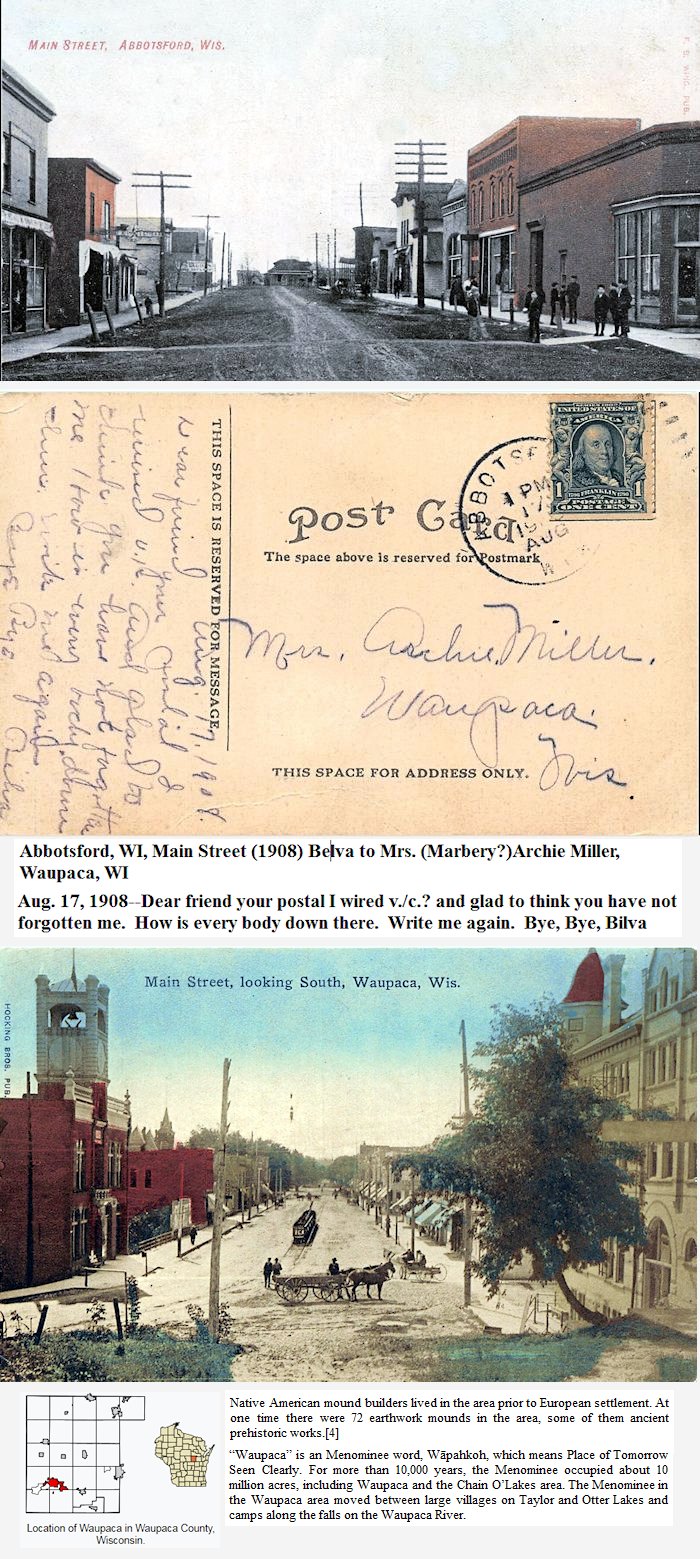 MAIN STREET, ABBOTSFORD, WIS.
Post Card
The space above is reserved for Postmark
ABBOTSF
1 PM
17
19
AUG
WI
SERIES 1902
UNITED STATES OF
AMERICA
1 1
1706 FRANKLIN 1790
POSTAGE
ONE CENT
THIS SPACE IS RESERVED FOR MESSAGE
Aug. 17, 1908.
Dear friend your postal I
and glad to
think you have not forgotten
me. How is every body down
there. Write me again
Bye Bye
Mrs. Archie Miller.
Waupaca.
Wis.
THIS SPACE FOR ADDRESS ONLY.
Abbotsford, WI, Main Street (1908) Belva to Mrs. (Marbery?)Archie Miller,
Waupaca, WI
Aug. 17, 1908--Dear friend your postal I wired v./c.? and glad to think you have not
forgotten me. How is every body down there. Write me again. Bye, Bye, Bilva
Main Street, looking South, Waupaca, Wis.
HOCKING BROS. PUB.
Native American mound builders lived in the area prior to European settlement. At
one time there were 72 earthwork mounds in the area, some of them ancient
prehistoric works.[4]
“Waupaca” is an Menominee word, Wāpahkoh, which means Place of Tomorrow
Seen Clearly. For more than 10,000 years, the Menominee occupied about 10
million acres, including Waupaca and the Chain O’Lakes area. The Menominee in
the Waupaca area moved between large villages on Taylor and Otter Lakes and
camps along the falls on the Waupaca River.
Location of Waupaca in Waupaca County,
Wisconsin.